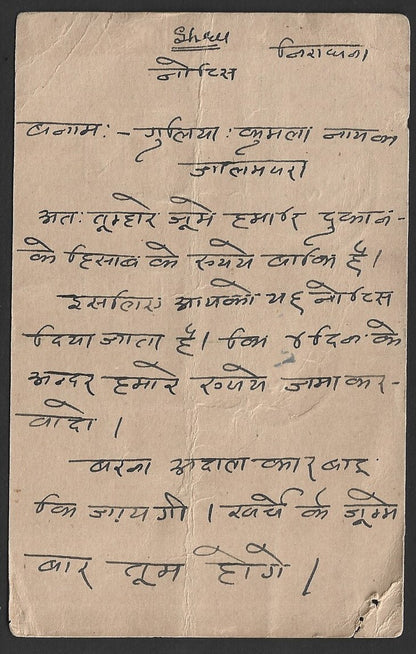 निराधना
नोटिस
बनाम:- गुलिया: कुमला नायक
जालमपरा
अत: तूम्हारे जूमे हमारि दुकान-
के हिसाब के रुपये बाकि हैं।
इसलिए आपको यह नोटिस
दिया जाता है। कि ४ दिन के
अन्दर हमारे रुपये जमा कर-
वादो।
बरना अदालत कार बाइ
कि जायगी। खर्चे के जूम्मे
बार तूम होगे।